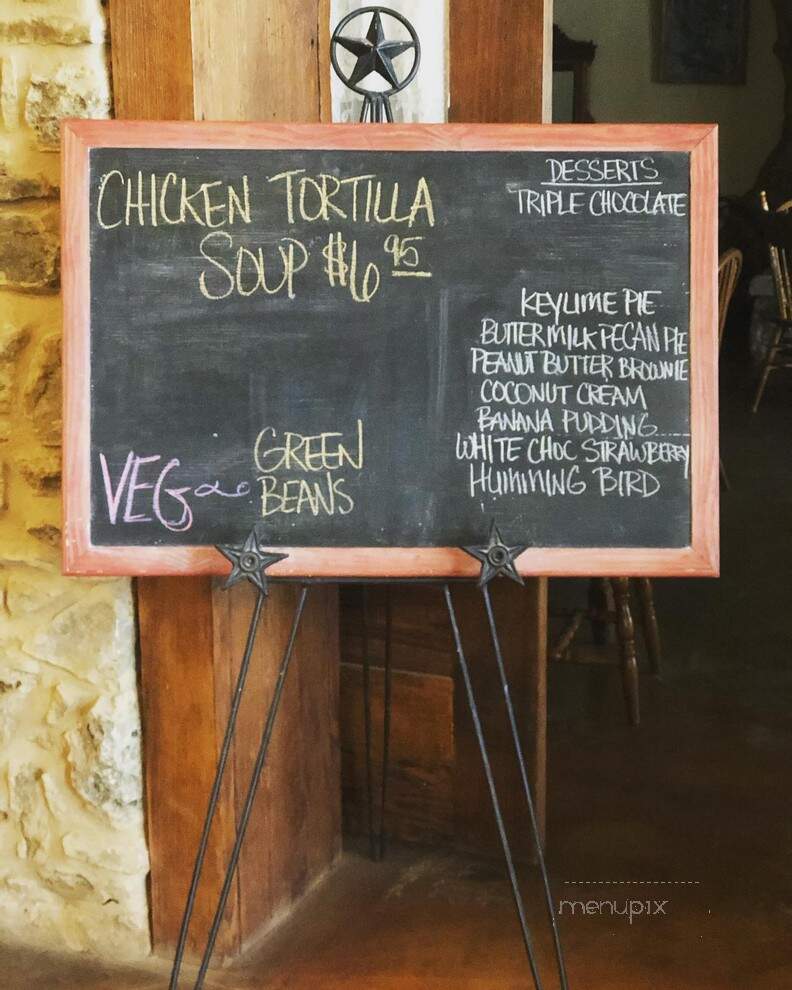 CHICKEN TORTILLA
SOUP $6 95
VEG
GREEN
BEANS
DESSERTS
TRIPLE CHOCOLATE
KEYLIME PIE
BUTTERMILK PECAN PIE
PEANUT BUTTER BROWNIE
COCONUT CREAM
BANANA PUDDING
WHITE CHOC STRAWBERRY
HUMMING BIRD
menupix